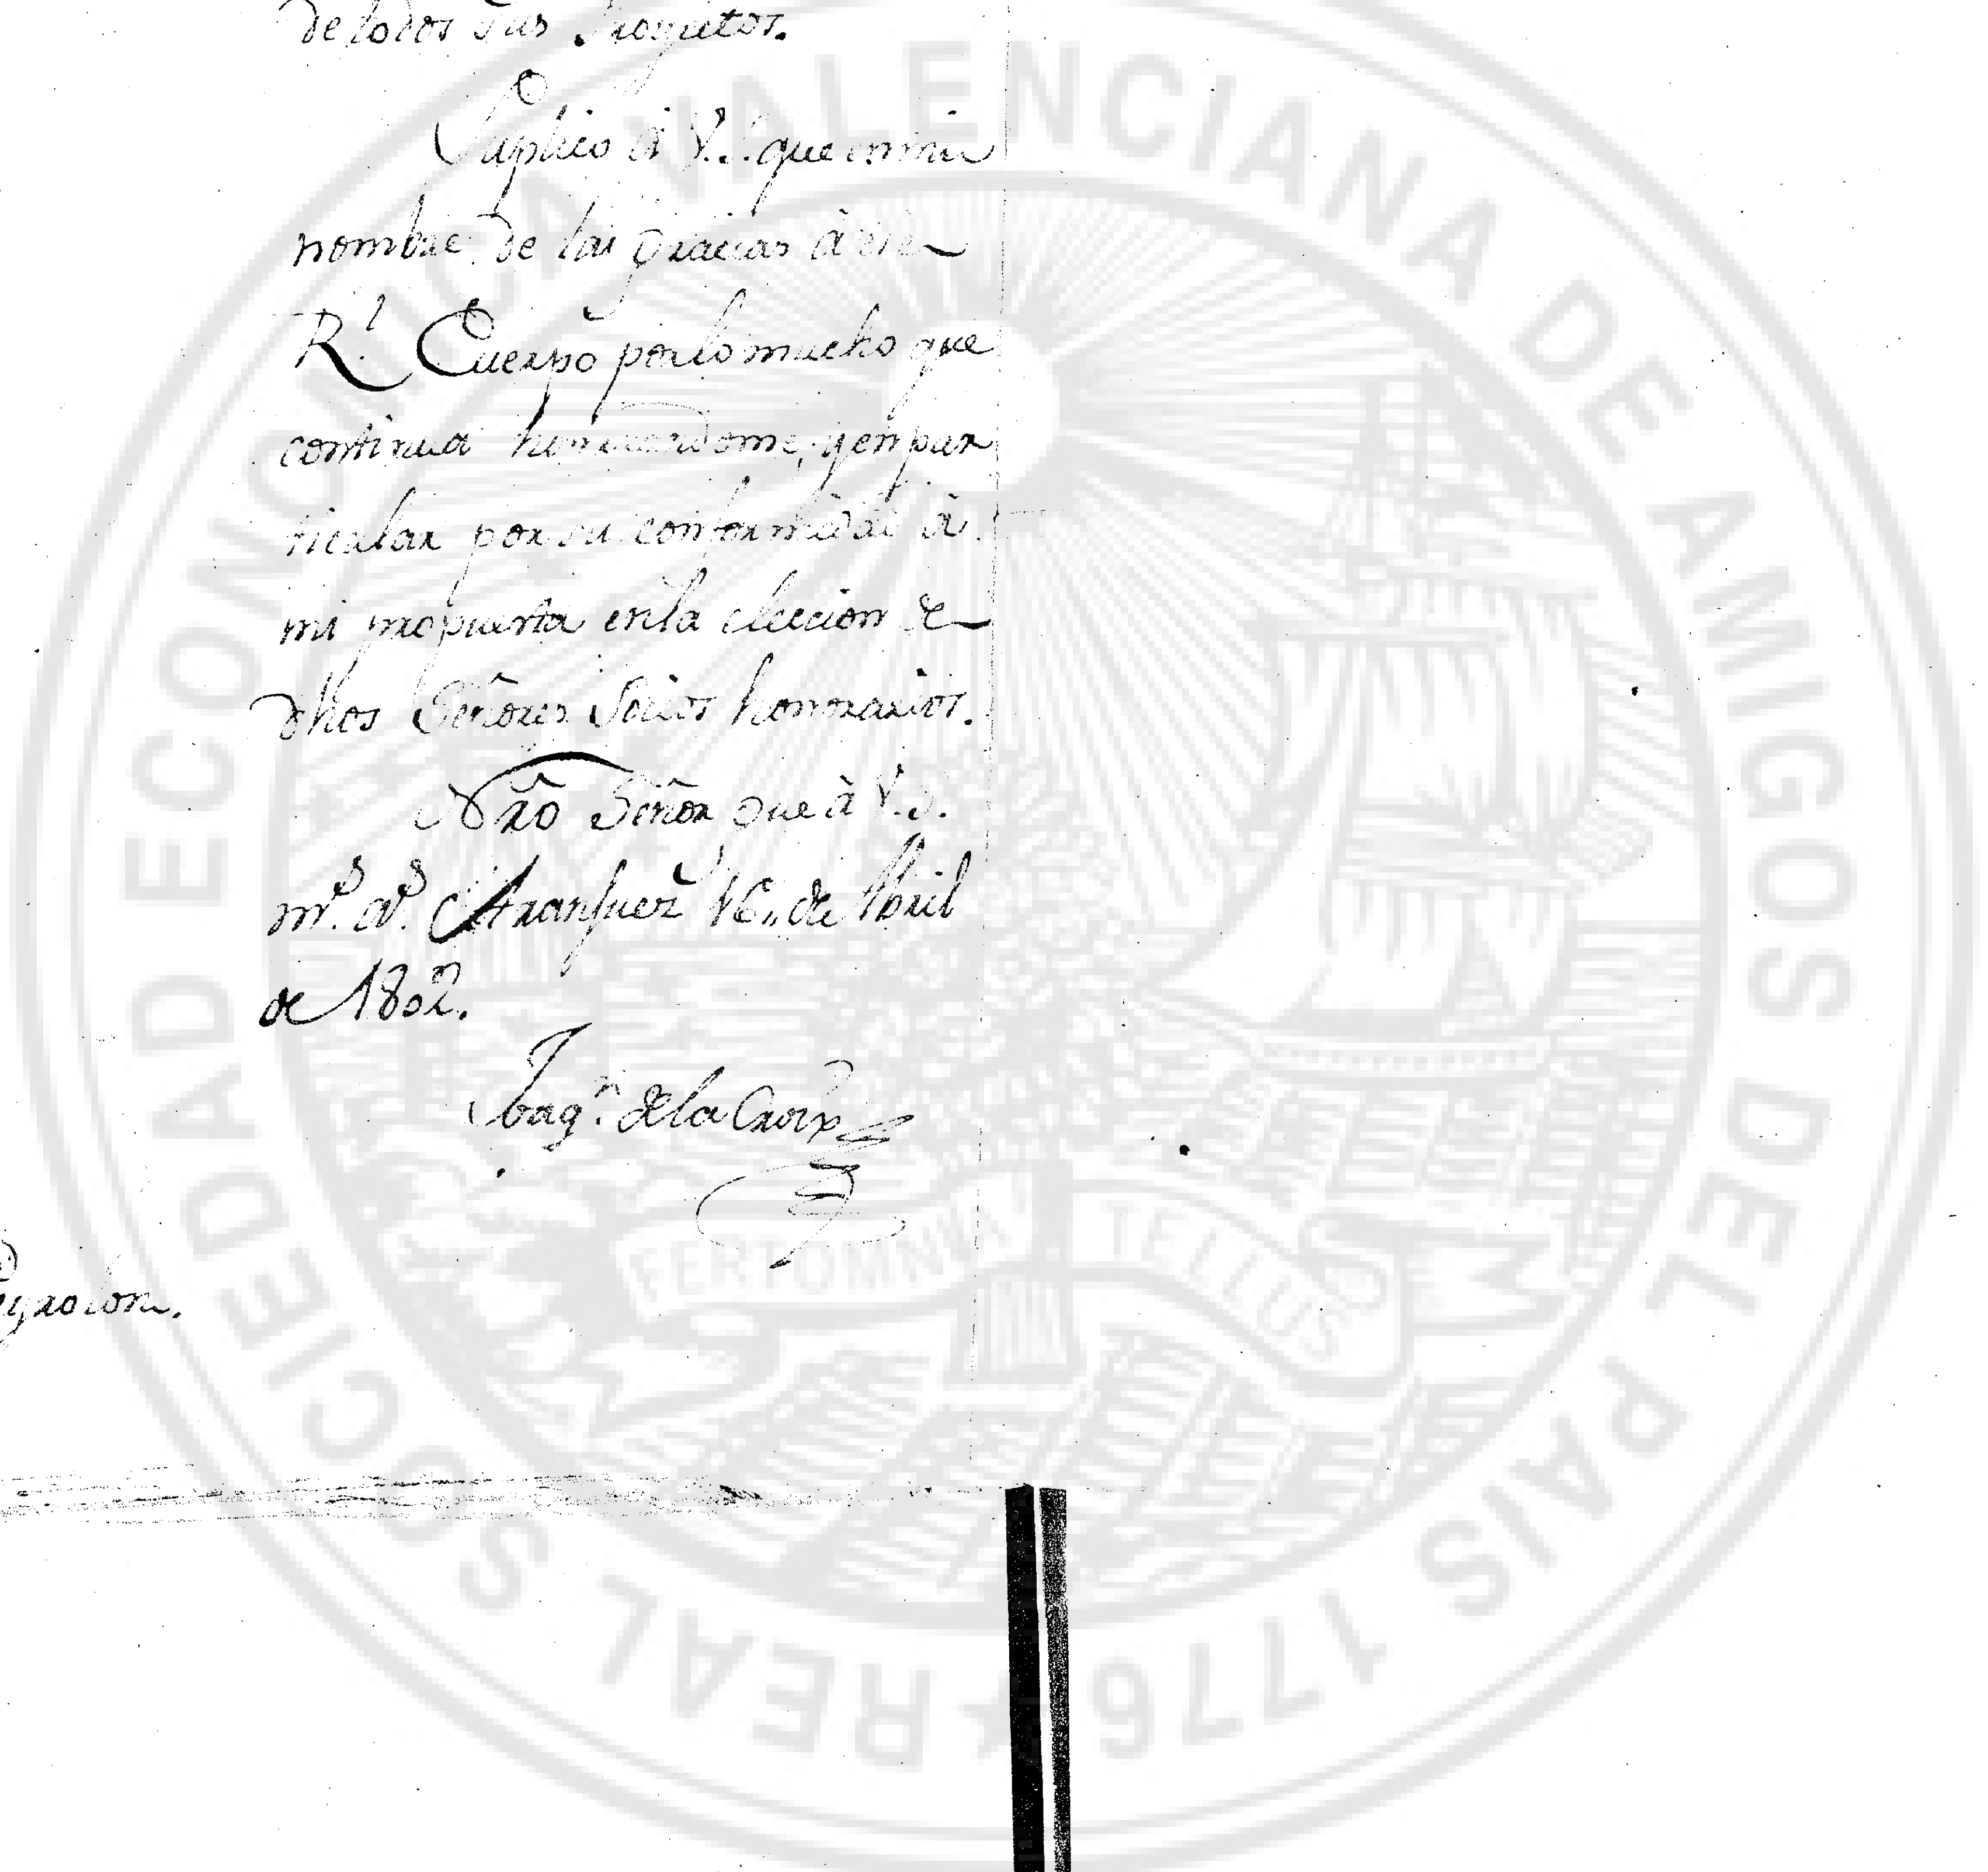 de todos sus Proyectos.
Suplico à V.S. que en mi
nombre de las gracias à ese
R.l Cuerpo por lo mucho que
continua honrrandome, y en par
ticular por su conformidad à
mi propuesta en la eleccion de
dhos Señores Socios honorarios.
Nrõ Señor gue à V.S.
m.s a.s Aranjuez 16,, de Abril
de 1802.
Joaq.n de la Croix
eyrolon.
REAL SOCIEDAD ECONOMICA VALENCIANA DE AMIGOS DEL PAIS 1776